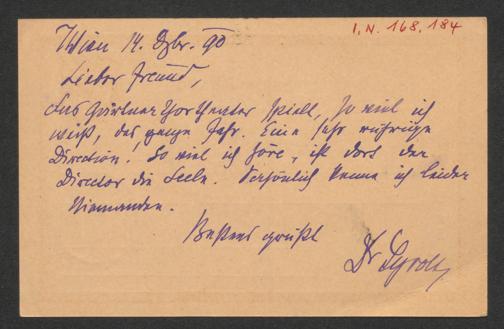 I.N. 168.184
Wien 14. Dzbr. 90
Lieber Freund,
Das Gärtnerthortheater spielt, so viel ich
weiß, das ganze Jahr. Eine sehr rührige
Direction! So viel ich höre, ist dort der
Director die Seele. Persönlich kenne ich leider
Niemanden.
Bestens grüßt
Dr Tyrolt